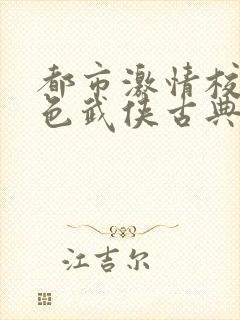 都市激情校
色武侠古典
江吉尔